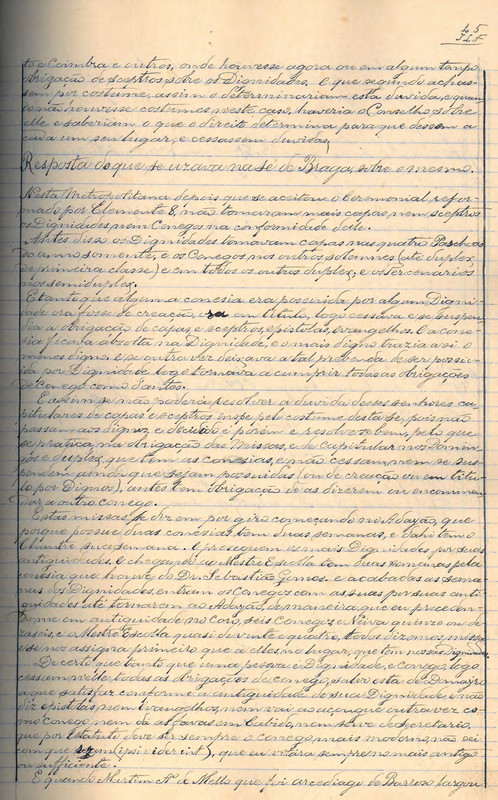 45
to e Coimbra e outros, onde houvesse agora ou em algum tempo
obrigação de sceptros sobre os Dignidades. E que segundo achas-
sem por costume, assim o determinariam esta duvida, e quan-
do não houvesse costumes neste caso, haveria o Conselho sobre
elle e saberiam o que o direito determina para que dessem a
cada um seu lugar, e cessassem duvidas.
Resposta do que se uzava na sé de Braga, sobre o mesmo.
Nesta Metropolitana depois que se aceitou o Ceremonial refor-
mado por Clemente 8, não tomaram mais capas nem sceptros
os Dignidades nem Conegos na conformidade delle.
Antes disso os Dignidades tomavam capas nas quatro Paschoas
do anno somente, e os Conegos nos outros solemnes (até duplex
de primeira classe) e em todos os outros duplex, e os tercenarios
nos semiduplex.
E tanto que alguma conesia era possuida por algum Digni-
dade ora fosse de creação ora em titulo, logo cessava e se suspen-
dia a obrigação de capas, e sceptros, epistolas, evangelhos. E a cone-
sia ficava absolta na Dignidade, e o mais digno trazia a si o
menos digno. e se outra vez deixava a tal prebenda de ser possui-
da por Dignidade logo tornava a cumprir todas as obrigações
de Conego como d'antes.
E assim se não poderá resolver a duvida desses senhores ca-
pitulares de capas e sceptros, pelo costume desta Sé, pois não
passam aos dignos, e decide-se porem e resolve-se bem, pelo que
se pratica, na obrigação das Missas, e de capitular nos Domin-
gos e duplex, que tem as conesias, e não cessam, nem se sus-
pendem ainda que sejam possuidas (ou de creação ou em titu-
lo por Dignos), antes tem obrigação de as dizerem ou encommen-
dar a outro conego.
Estas missas, se dizem por giro começando no Adayão, que
porque possue duas conesias, tem duas semanas, e dahi tem o
Chantre sua semana. E proseguem os mais Dignidades por suas
antiguidades. E chegando ao Mestre Escolla tem duas semanas pela
conesia que houve do Dr. Sebastião Gomes. e acabadas as sema-
nas dos Dignidades, entram os Conegos com as suas por suas anti-
guidades até tornarem ao Adayão, de maneira, que eu preceden-
do-me em antiguidade no Coro, seis Conegos e Neiva quinze ou de-
zaseis, e o Mestre Escolla quasi de vinte e quatro, todos dizemos missa
e se nos assigna primeiro que a elles, no lugar, que tem nossas Dignidades.
De certo que tanto que uma pessoa é Dignidade, e Conego, logo
cessam nelle todas as obrigações de conego, salvo esta de Domayro
a que satisfaz conforme a antiguidade de sua Dignidade, e não
diz epistolas, nem Evangelhos, nem vai ao açougue outra vez co-
mo conego, nem dá as favas em Cabido, nem serve de Secretario.
que por Estatuto deve ser sempre o conego mais moderno, não sei
com que razam (ipsi viderint), que eu votára sempre no mais antigo
ou sufficiente.
E quando Martim Aº de Mello que foi arcediago de Barroso largou